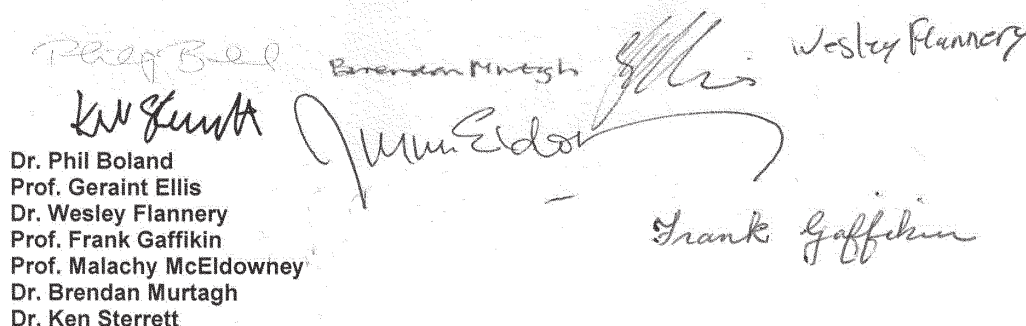 Philip Boland
Brendan Murtagh
G Ellis
Wesley Flannery
Ken Sterrett
McEldowney
Frank Gaffikin
Dr. Phil Boland
Prof. Geraint Ellis
Dr. Wesley Flannery
Prof. Frank Gaffikin
Prof. Malachy McEldowney
Dr. Brendan Murtagh
Dr. Ken Sterrett